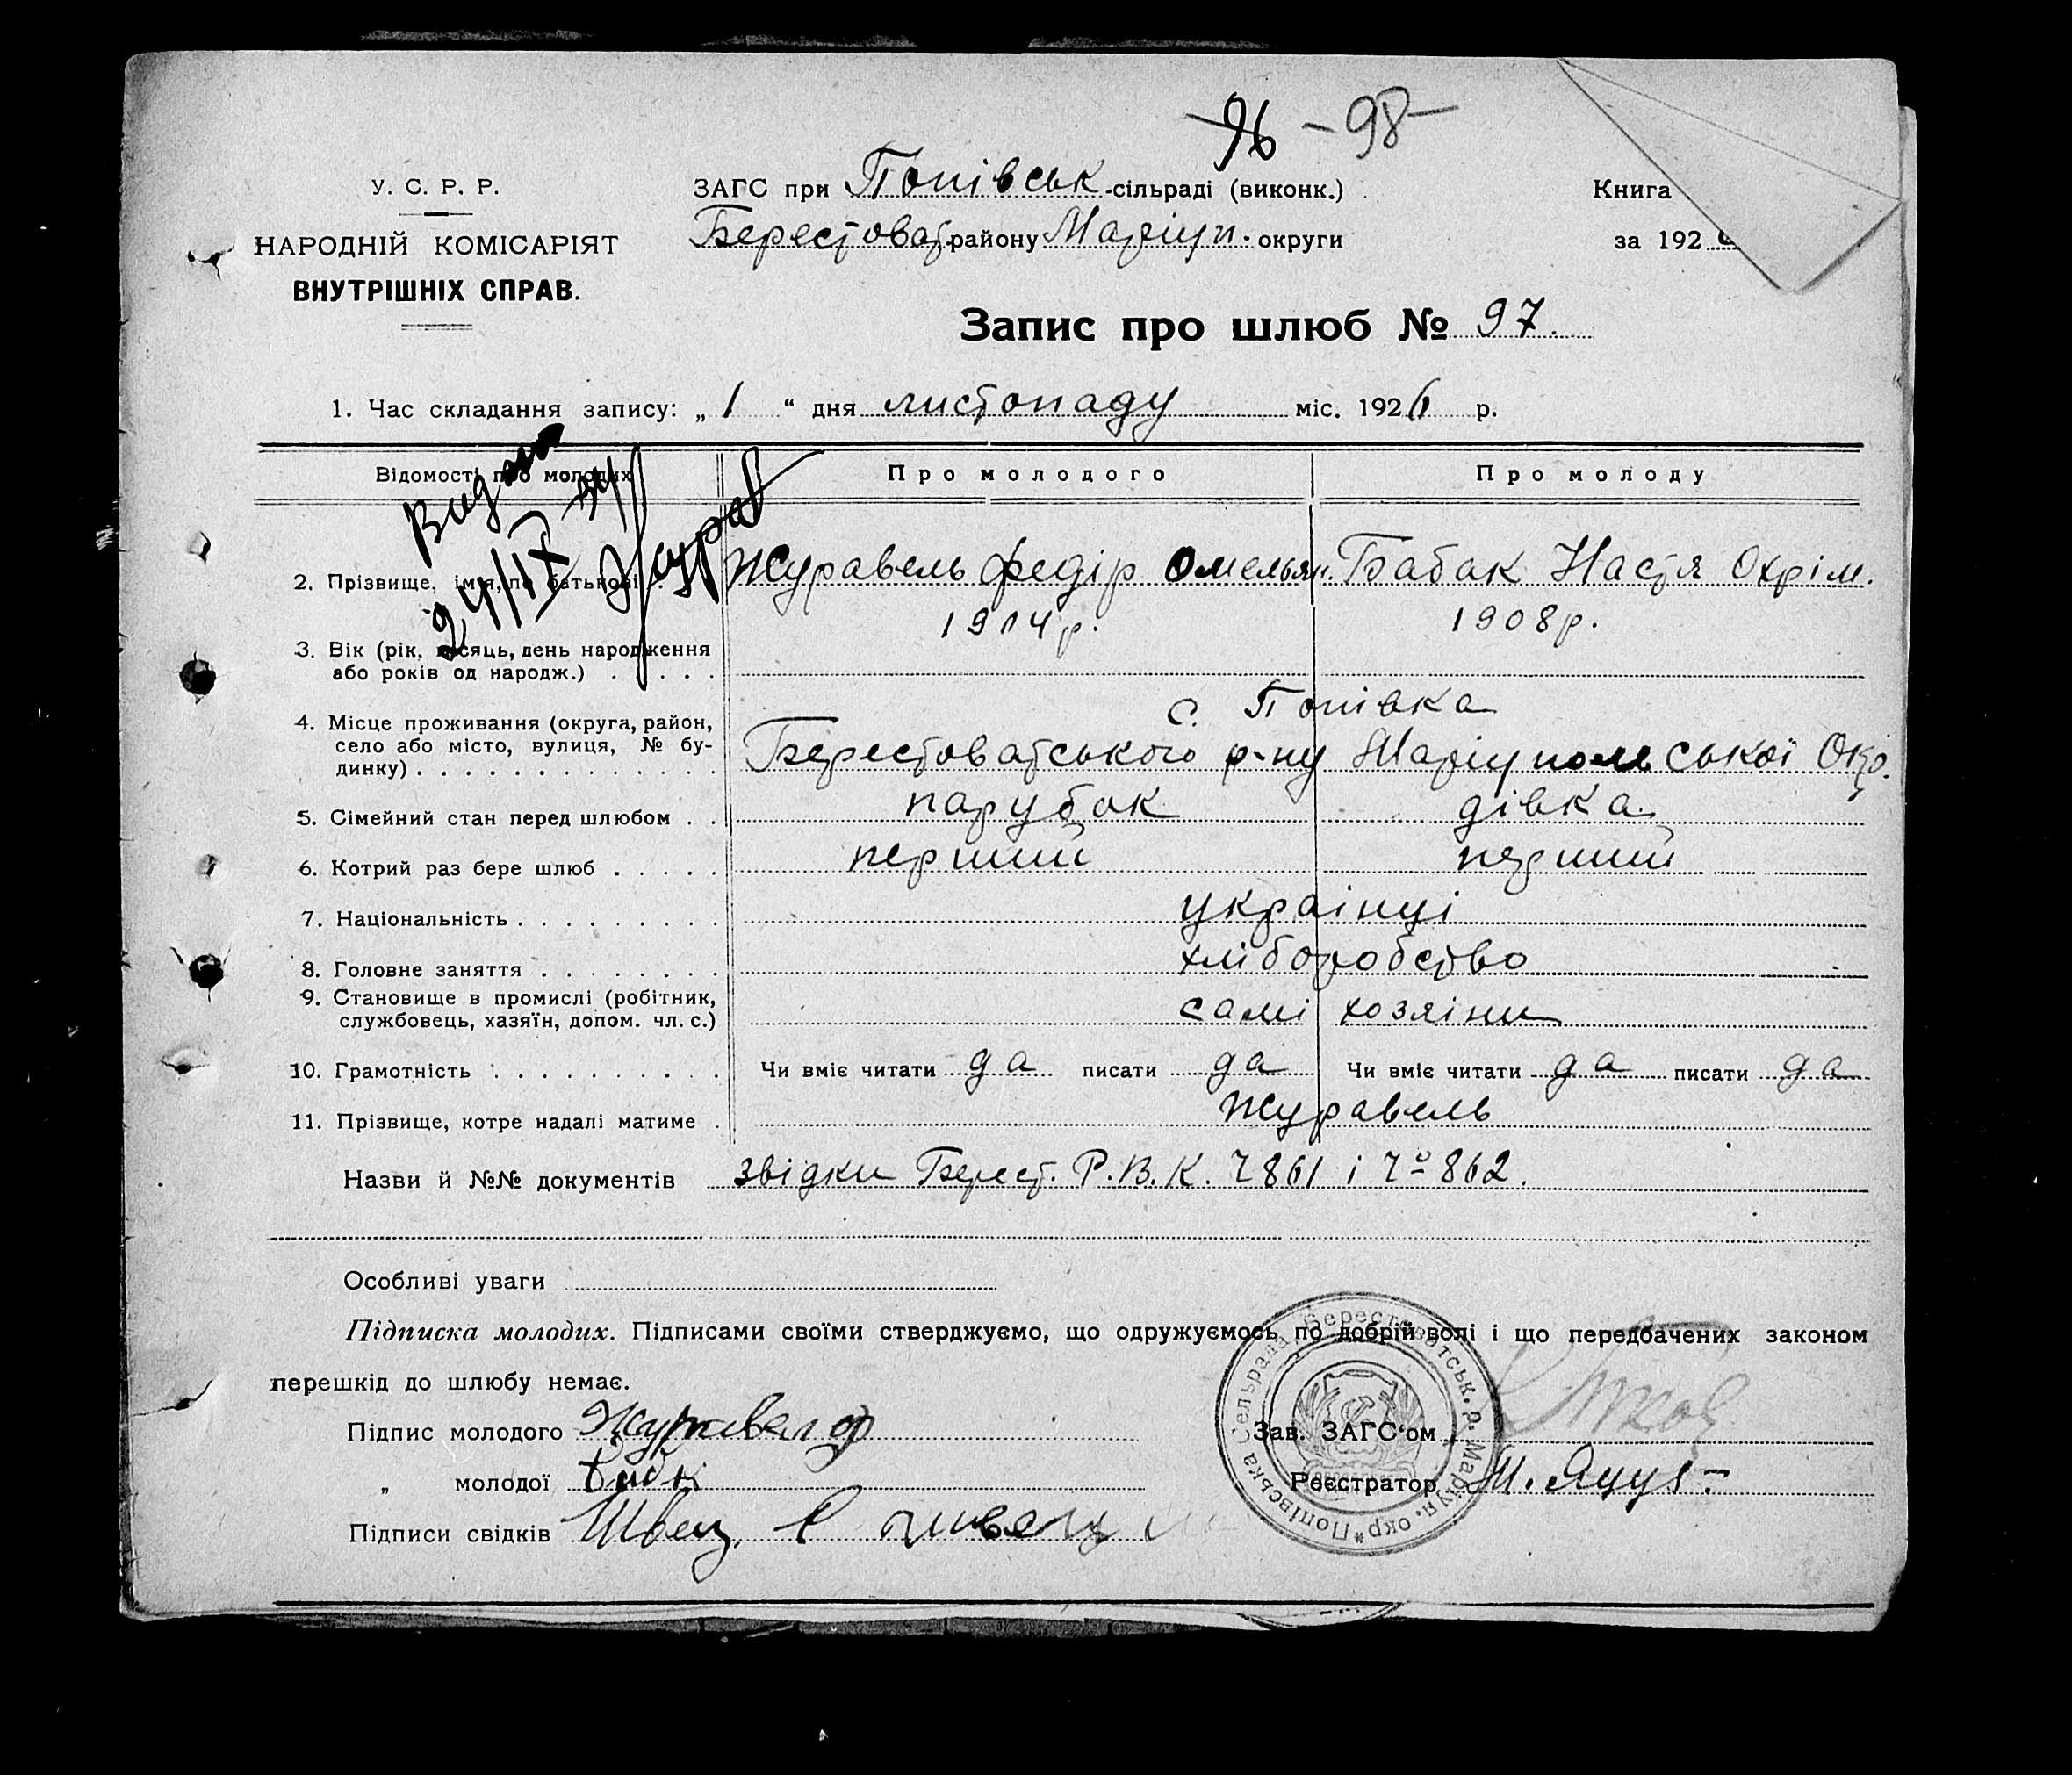 96 – 98
У. С. Р. Р.
НАРОДНІЙ КОМІСАРІЯТ
ВНУТРІШНІХ СПРАВ.
ЗАГС при Попівськ. сільраді (виконк.)
Берестоват. району Маріуп. округи
Книга
за 192
Запис про шлюб № 97.
1. Час складання запису: „ 1 “ дня листопаду міс. 1926 р.
Відомості про молодих
Про молодого
Про молоду
Видано
24/IX
2. Прізвище, ім'я, по батькові . Журавель Федір Омельян. Бабак Настя Охрім.
3. Вік (рік, місяць, день народження або років од народж.) . . . . . 1904 р. 1908 р.
4. Місце проживання (округа, район, село або місто, вулиця, № будинку) . . . с. Попівка
Берестоватського р-ну Маріупольської Окр.
5. Сімейний стан перед шлюбом . . парубок дівка
6. Котрий раз бере шлюб . . . . . перший перший
7. Національність . . . . . . . . . українці
8. Головне заняття . . . . . . . . хліборобство
9. Становище в промислі (робітник, службовець, хазяїн, допом. чл. с.) самі хозяїни
10. Грамотність . . . . . . . . . . Чи вміє читати да писати да Чи вміє читати да писати да
11. Прізвище, котре надалі матиме . Журавель
Назви й №№ документів звідки Берест. Р.В.К. № 861 і № 862.
Особливі уваги
Підписка молодих. Підписами своїми стверджуємо, що одружуємось по добрій волі і що передбачених законом
перешкід до шлюбу немає.
Підпис молодого Журавел ф
„ молодої
Підписи свідків Швец.
Зав. ЗАГС'ом
Реєстратор
Попівська Сельрада Берестоватськ. р. Маріуп. окр *